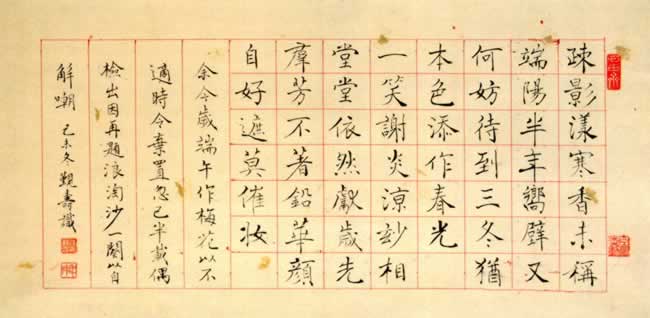 疎影漾寒香未稱
端陽半年嚮壁又
何妨待到三冬猶
本色添作春光
一笑謝炎涼玅相
堂堂依然獻歲先
羣芳不著鉛華顔
自好遮莫催妝
余今歲端午作梅花以不
適時令棄置忽已半載偶
檢出因再題浪淘沙一闋以自
解嘲 己未冬 壽識